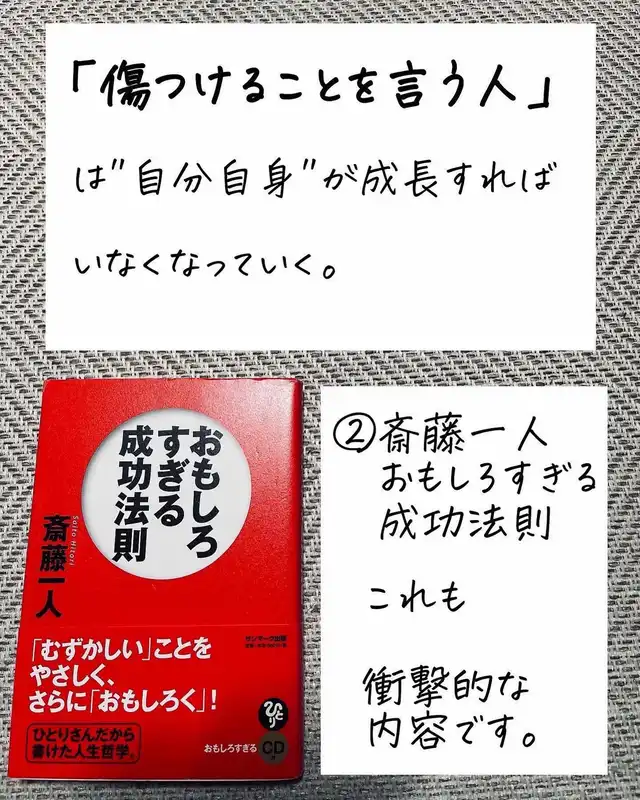 「傷つけることを言う人」
は"自分自身"が成長すれば
いなくなっていく。
おもしろ
すぎる
成功法則
Saito Hitori
斎藤一人
サンマーク出版
「むずかしい」ことを
やさしく、
さらに「おもしろく」!
ひとりさんだから
書けた人生哲学。
おもしろすぎる
CD
②斎藤一人
おもしろすぎる
成功法則
これも
衝撃的な
内容です。